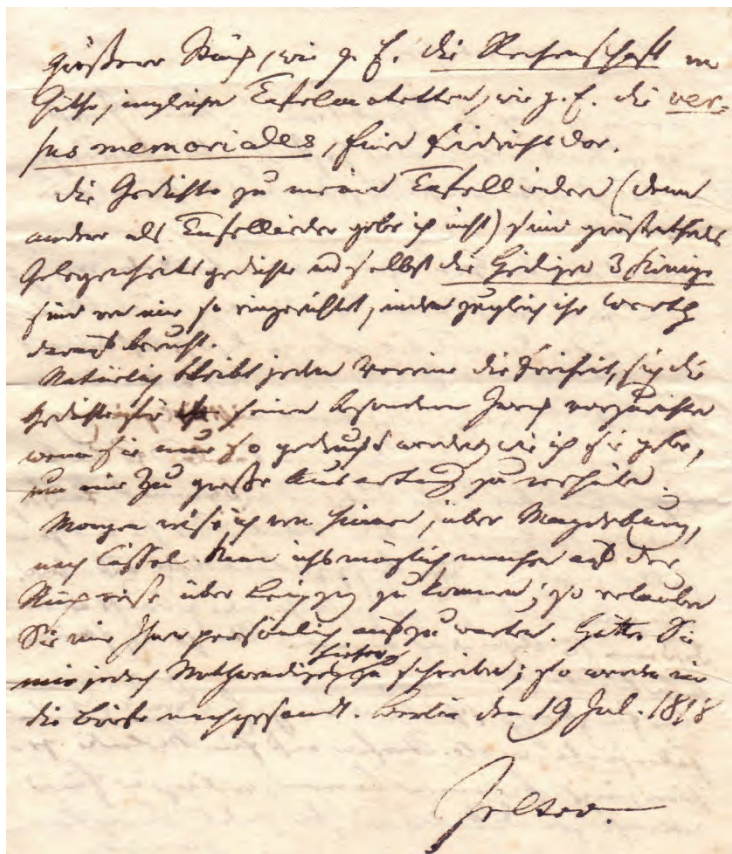 größerer Stücke, wie z. E. die Rechenschaft von
Göthe, imgleichen Tafelmotetten, wie z. E. die ver-
sus memoriales, fünf Friedrichsdor.
Die Gedichte zu meinen Tafelliedern (denn
andere als Tafellieder gebe ich nicht) sind größtentheils
Gelegenheitsgedichte und selbst die Heiligen 3 Könige
sind von mir so eingerichtet, indem zugleich ihr Werth
darauf beruht.
Natürlich bleibt jedem Vereine die Freiheit, sich die
Gedichte für seinen besondern Zweck
wenn sie nur so gedruckt werden wie ich sie gebe,
um nur zu große Ausartung zu verhüten.
Morgen reise ich von hinnen, über Magdeburg,
nach Cassel. Kann ichs möglich machen auf der
Rückreise über Leipzig zu kommen; so erlauben
Sie mir Ihnen persönlich aufzuwarten. Hätten Sie
mir jedoch Nothwendiges hieher zu schreiben; so werden mir
die Briefe nachgesandt. Berlin den 19 Jul. 1818
Zelter.